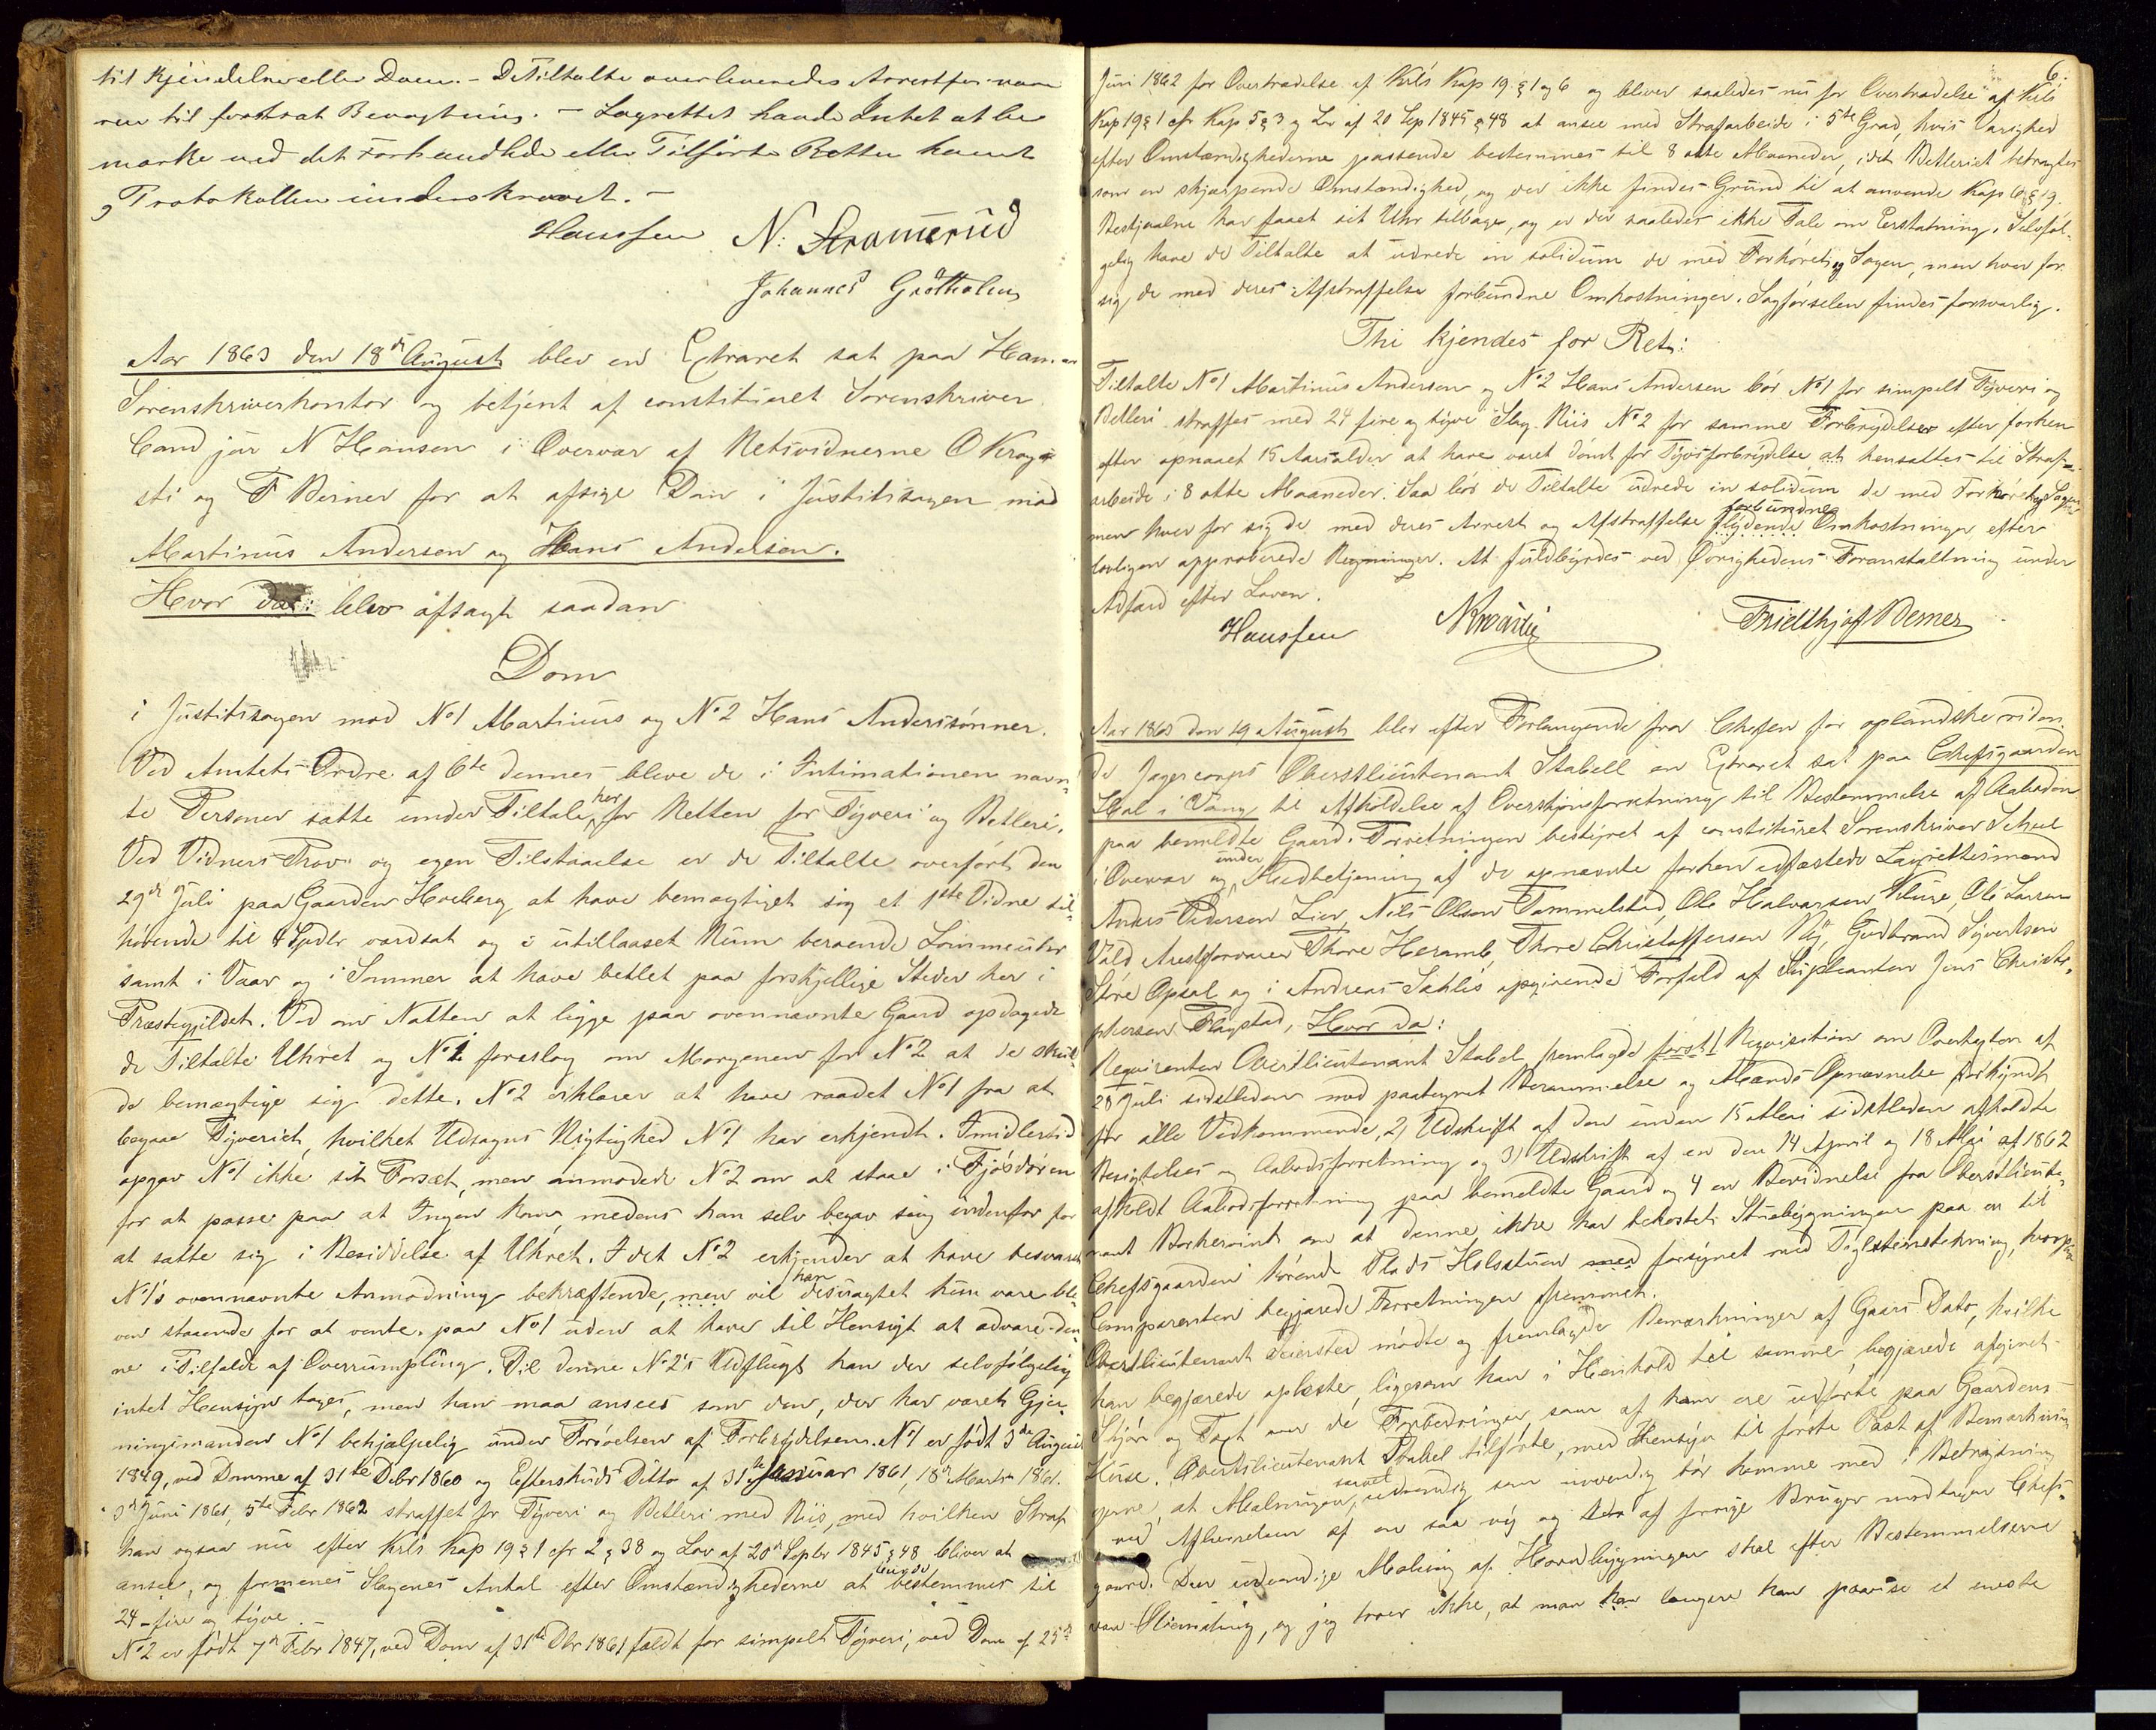 til Kjendelse eller Dom. - De Tiltalte overleveredes Arrestfor-
ren til fortsat Bevogtning. - Lagrettet havde Intet at be
mærke ved det Forhandlede eller Tilførte Retten hævet
Protokollen underskrevet. -
Hanssen N: Stramerud
Johannes Grøtholm
Aar 1863 den 18de August blev en Extraret sat paa Hamar
Sorenskriverkontor og betjent af constitueret Sorenskriver
Cand jur N Hansen i Overvær af Retsvidnerne O Krag
sti og F Berner for at afsige Dom i Justitssagen mod
Martinus Andersen og Hans Andersen.
Hvor da: blev afsagt saadan
Dom
i Justitssagen mod No 1 Martinus og No 2 Hans Anderssønner.
Ved Amtets Ordre af 6te dennes bleve de i Intimationen nævn
te Personer satte under Tiltale her for Retten for Tyveri og Betleri.
Ved Vidners Prov og egen Tilstaaelse er de Tiltalte overført den
29de Juli paa Gaarden Hoeberg at have bemægtiget sig et 1ste Vidne til
hørende til 4 Spdlr værdsat og i utillaaset Rum beroende Lommeuhr
samt i Vaar og i Sommer at have betlet paa forskjellige Steder her i
Præstegjeldet. Ved om Natten at ligge paa ovennævnte Gaard opdagede
de Tiltalte Uhret og No 1 foreslog om Morgenen for No 2 at de skul
de bemægtige sig dette. No 2 erklærer at have raadet No 1 fra at
begaae Tyveriet, hvilket Udsagns Rigtighed No 1 har erkjendt. Imidlertid
opgav No 1 ikke sit Forsæt, men anmodede No 2 om at staae i Fjøsdøren
for at passe paa at Ingen kom, medens han selv begav sig indenfor for
at sætte sig i Besiddelse af Uhret. I det No 2 erkjender at have besvaret
No 1's ovennævnte Anmodning bekræftende, men vil han desuagtet kun være ble
ven staaende for at vente paa No 1 uden at have til Hensigt at advare den
ne i Tilfælde af Overrumpling. Til denne No 2's Udflugt kan der selvfølgelig
intet Hensyn tages, men han maa ansees som den, der har været Gjer
ningsmanden No 1 behjælpelig under Forøvelsen af Forbrydelsen. No 1 er født 3de August
1849, ved Domme af 31te Debr 1860 og Extraretds Ditto af 31te Januar 1861, 18de Marts 1861.
3de Juni 1861, 5te Febr 1862 straffet for Tyveri og Betleri med Riis, med hvilken Straf
han ogsaa nu efter Krls Kap 19 § 1 cfr 2 § 38 og Lov af 20de Septbr 1845 § 48 bliver at
ansee, og formenes Slagenes Antal efter Omstændighederne at burde bestemmes til
24 - fire og tyve. -
No 2 er født 7de Febr 1847, ved Dom af 31te Dbr 1861 fældt for simpelt Tyveri, ved Dom af 25de
6.
Juni 1862 for Overtrædelse af Krls Kap 19 § 1 og 6 og bliver saaledes nu for Overtrædelse af Krls
Kap 19 § 1 cfr Kap 5 § 3 og Lov af 20 Sep 1845 § 48 at ansee med Strafarbeide i 5te Grad, hvis Varighed
efter Omstændighederne passende bestemmes til 8 otte Maaneder, idet Betleriet betragtes
som en skjærpende Omstændighed, og der ikke findes Grund til at anvende Kap 6 § 19.
Bestjaalne har faaet sit Uhr tilbage, og er der saaledes ikke Tale om Erstatning. Selvføl
gelig have de Tiltalte at udrede in solidum de med Forhøret og Sagen, men hver for
sig de med deres Afstraffelse forbundne Omkostninger. Sagførselen findes forsvarlig.
Thi kjendes for Ret:
Tiltalte No 1 Martinus Andersen og No 2 Hans Andersen bør No 1 for simpelt Tyveri og
Betleri straffes med 24 fire og tyve Slag Riis No 2 for samme Forbrydelser efter forhen
efter opnaaet 15 Aarsalder at have været dømt for Tyvsforbrydelse at hensættes til Straf
arbeide i 8 otte Maaneder. Saa bør de Tiltalte udrede in solidum de med Forhøret og Sagen
men hver for sig de med deres Arrest og Afstraffelse flydende forbundne Omkostninger efter
lovligen approberede Regninger. At fuldbyrdes ved Øvrighedens Foranstaltning under
Adfærd efter Loven.
Hanssen Fridthjof Berner
Aar 1863 den 19 August blev efter Forlangende fra Chefen for oplandske riden
de Jægercorps Oberstlieutenant Stabell en Extraret sat paa Chefsgaarden
Hol i Vang til Afholdelse af Overskjønsforretning til Bestemmelse af Aaboden
paa bemeldte Gaard. Forretningen bestyret af constitueret Sorenskriver
i Overvær og under Medbetjening af de opnævnte forhen edfæstede Laugrettesmænd
Anders Pedersen Lier, Nils Olsen Tommelstad, Ole Halvorsen Kluse, Ole Larsen
Vold Arrestforvarer Thore Heramb, Thore Christoffersen Ny, Gudbrand Syvertsen
Store Opsal og i Andreas Sæhlis opgivende Forfald af Supleanten Jens Christo
phersen Flagstad, Hvor da:
Requirenten Oberstlieutenant Stabel fremlagde først 1) Requisition om Overtaxten af
28 Juli sidstleden med paategnet Berammelse og Mænds Opnævnelse forkyndt
for alle Vedkommende, 2) Udskrift af den under 15 Mai sidstleden afholdte
Besigtelses og Aabodsforretning og 3) Udskrift af en den 14 April og 18 Mai af 1862
afholdt Aabodsforretning paa bemeldte Gaard og 4 en Bevidnelse fra Oberstlieute
nant om at denne ikke har bekostet Stuebygningen paa en til
Chefsgaarden hørende Plads Holsstuen med forsynet med Taglsteinstækning, hvorpaa
Comparenten begjærede Forretningen fremmet.
Oberstlieutenant Seiersted mødte og fremlagde Bemærkninger af Gaars Dato, hvilke
han begjærede oplæste, ligesom han i Henhold til samme begjærede afgivet
Skjøn og Taxt over de Forbedringer som af ham ere udførte paa Gaardens
Huse. Oberstlieutenant Stabel tilførte, med Hensyn til første Post af Bemærknin
gerne, at Malningen, saavel udvendig som indvendig bør komme med i Betragtning
ved Afleverelsen af en saa ny og af forrige Bruger modtagen Chefs
gaard. Den udvendige Maling af Hovedbygningen skal efter Bestemmelserne
være Steinsting, og jeg troer ikke, at man kan længere kan paavise et eneste